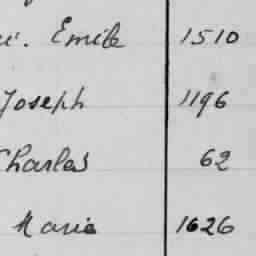 Emile 1510
Joseph 1196
Charles 62
Maria 1626